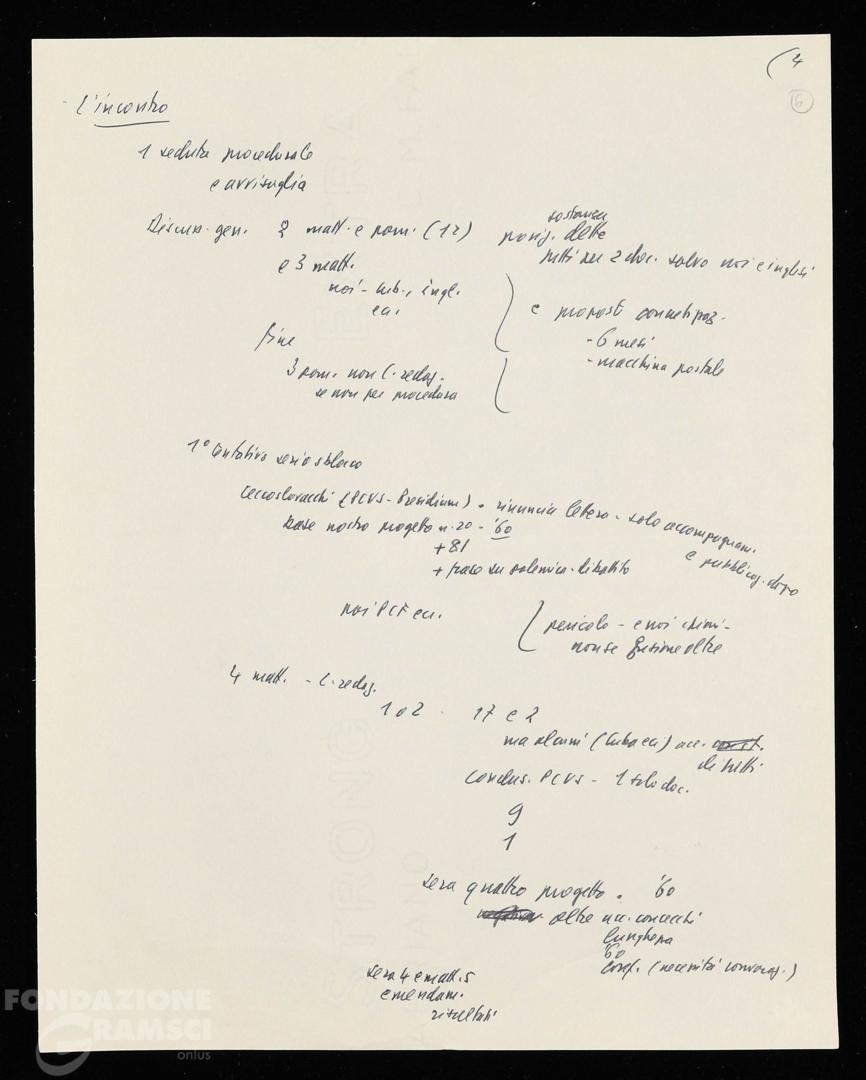 (4
5
- L'incontro
1 seduta procedurale
e avvisaglia
Discuss. gen. 2 matt. e pom. (12)
e 3 matt.
noi - cub., ingl.
ecc.
sostanza
posiz. dette
tutti per 2 doc. salvo noi e inglesi
e proposti
- 6 mesi
- macchina postale
fine
3 pom. non C. redaz.
se non per procedura
1° tentativo serio sblocco
Cecoslovacchi (PCUS - Presidium) - rinuncia lettera - solo accompagnam.
e pubblicaz. dopo
base nostro progetto n. 20 - '60
+ 81
+ frase su polemica - dibattito
noi PCF ecc.
pericolo - e noi
non se oltre
4 matt. - C. redaz.
1 o 2 - 17 e 2
ma alcuni (Cuba ecc) acc.
di tutti
conclus. PCUS - 1 solo doc.
9
1
sera quattro progetto - '60
oltre acc. con cechi
lunghezza
'60
conf. (necessità convocaz.)
sera 4 e matt. 5
emendam.
risultati
FONDAZIONE
GRAMSCI
onlus